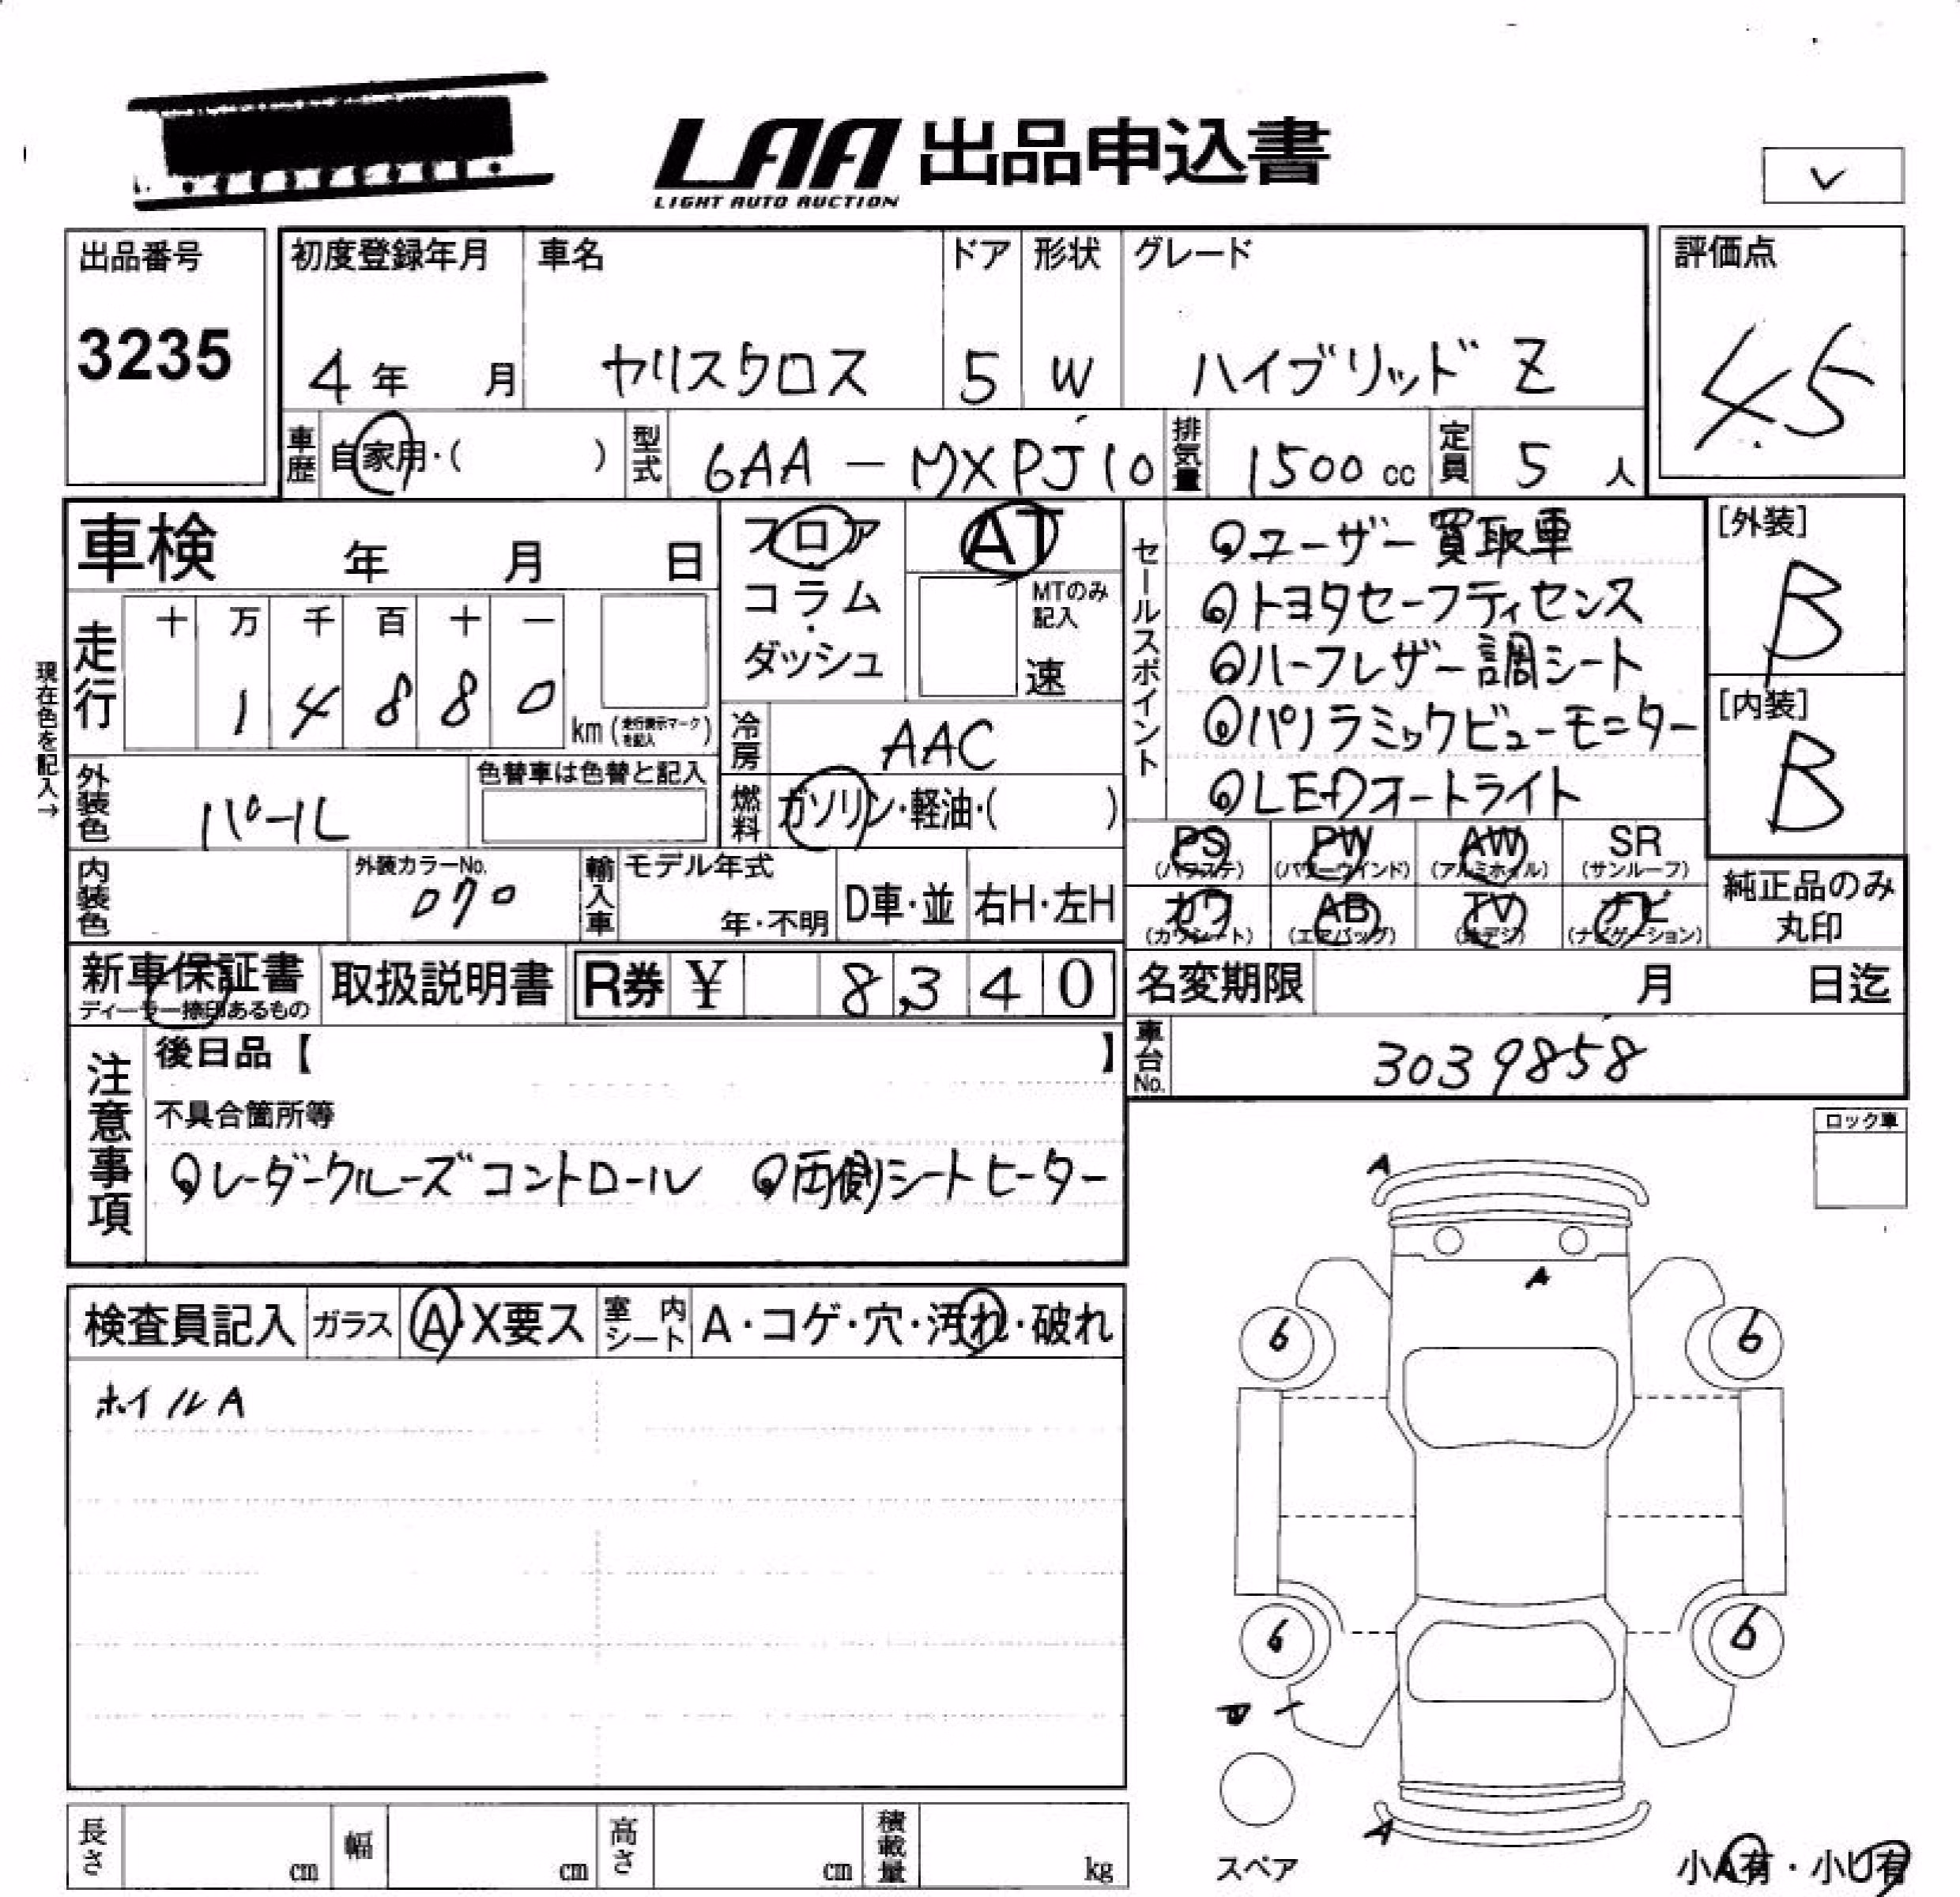 LAA 出品申込書
LIGHT AUTO AUCTION
出品番号
3235
初度登録年月
4年 月
車名
ヤリスクロス
ドア
5
形状
W
グレード
ハイブリッド Z
評価点
4.5
車歴 自家用・( )
型式 6AA-MXPJ10
排気量 1500 cc
定員 5 人
車検 年 月 日
フロア
コラム
・
ダッシュ
AT
MTのみ
記入
速
現在色を記入→
走行 十 万 千 百 十 一
1 4 8 8 0
km (走行表示マークを記入)
冷房 AAC
燃料 ガソリン・軽油・( )
外装色 パール
色替車は色替と記入
内装色
外装カラーNo.
070
輸入車
モデル年式
年・不明
D車・並
右H・左H
セールスポイント
ユーザー買取車
トヨタセーフティセンス
ハーフレザー調シート
パノラミックビューモニター
LEDオートライト
[外装]
B
[内装]
B
PS (パワステ)
PW (パワーウインド)
AW (アルミホイル)
SR (サンルーフ)
カワ (カワシート)
AB (エアバッグ)
TV (地デジ)
ナビ (ナビゲーション)
純正品のみ
丸印
新車保証書
ディーラー捺印あるもの
取扱説明書
R券 ¥ 8,340
名変期限 月 日迄
車台No. 3039858
注意事項
後日品【 】
不具合箇所等
レーダークルーズコントロール 両側シートヒーター
ロック車
検査員記入
ガラス A・X要ス
室内シート A・コゲ・穴・汚れ・破れ
ホイルA
A
A
6 6
6 6
A
スペア
小A有・小U有
長さ cm
幅 cm
高さ cm
積載量 kg